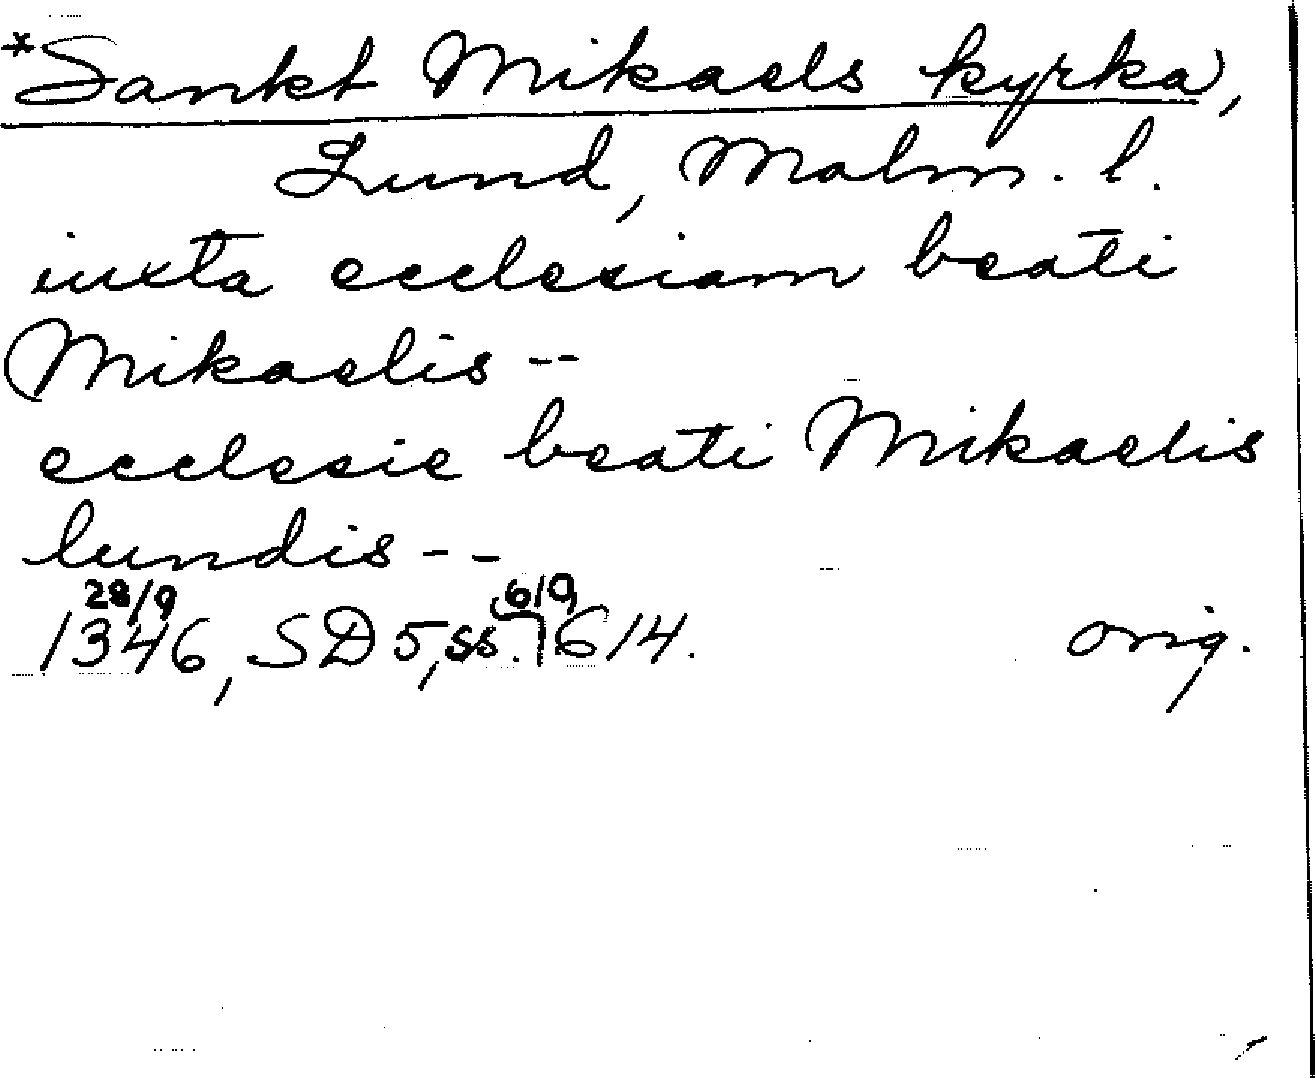 *Sankt Mikaels kyrka,
Lund, Malm. l.
iuxta ecclesiam beati
Mikaelis --
ecclesie beati Mikaelis
lundis --
28/9
1346, SD 5, ss. 614.
orig.